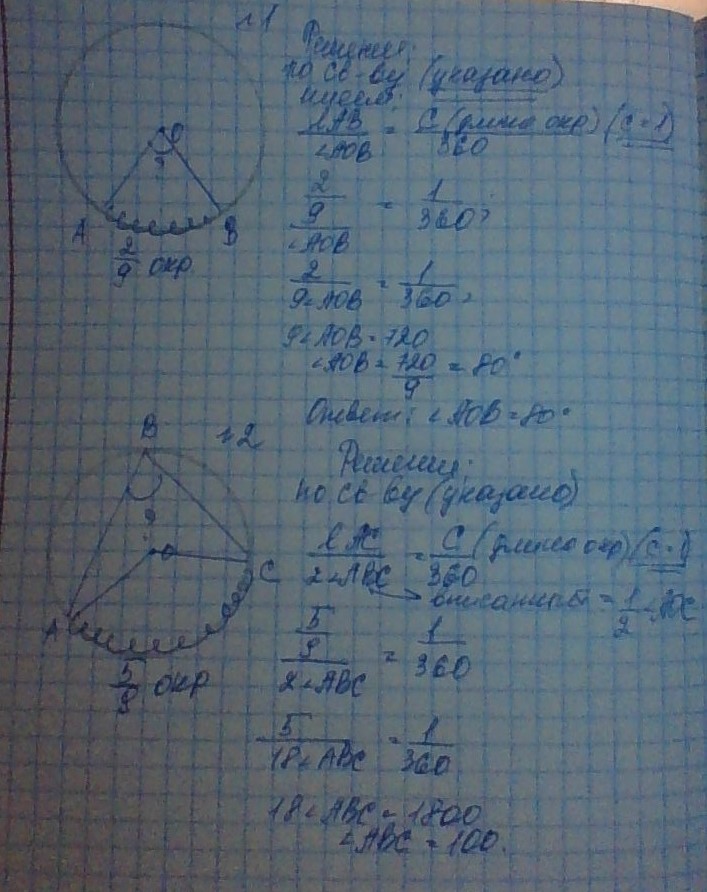 №1
Решение:
по св-ву (указано)
имеем:
lAB/∠AOB = C (длина окр)/360 (c=1)
2/9/∠AOB = 1/360;
2/9∠AOB = 1/360;
9∠AOB = 720
∠AOB = 720/9 = 80°
Ответ: ∠AOB = 80°
O
?
A
B
2/9 окр.
№2
Решение:
по св-ву (указано)
lAC/2∠ABC = C (длина окр)/360 (c=1)
вписанный = 1/2∠AOC
5/9/2∠ABC = 1/360
5/18∠ABC = 1/360
18∠ABC = 1800
∠ABC = 100.
B
?
O
C
A
5/9 окр